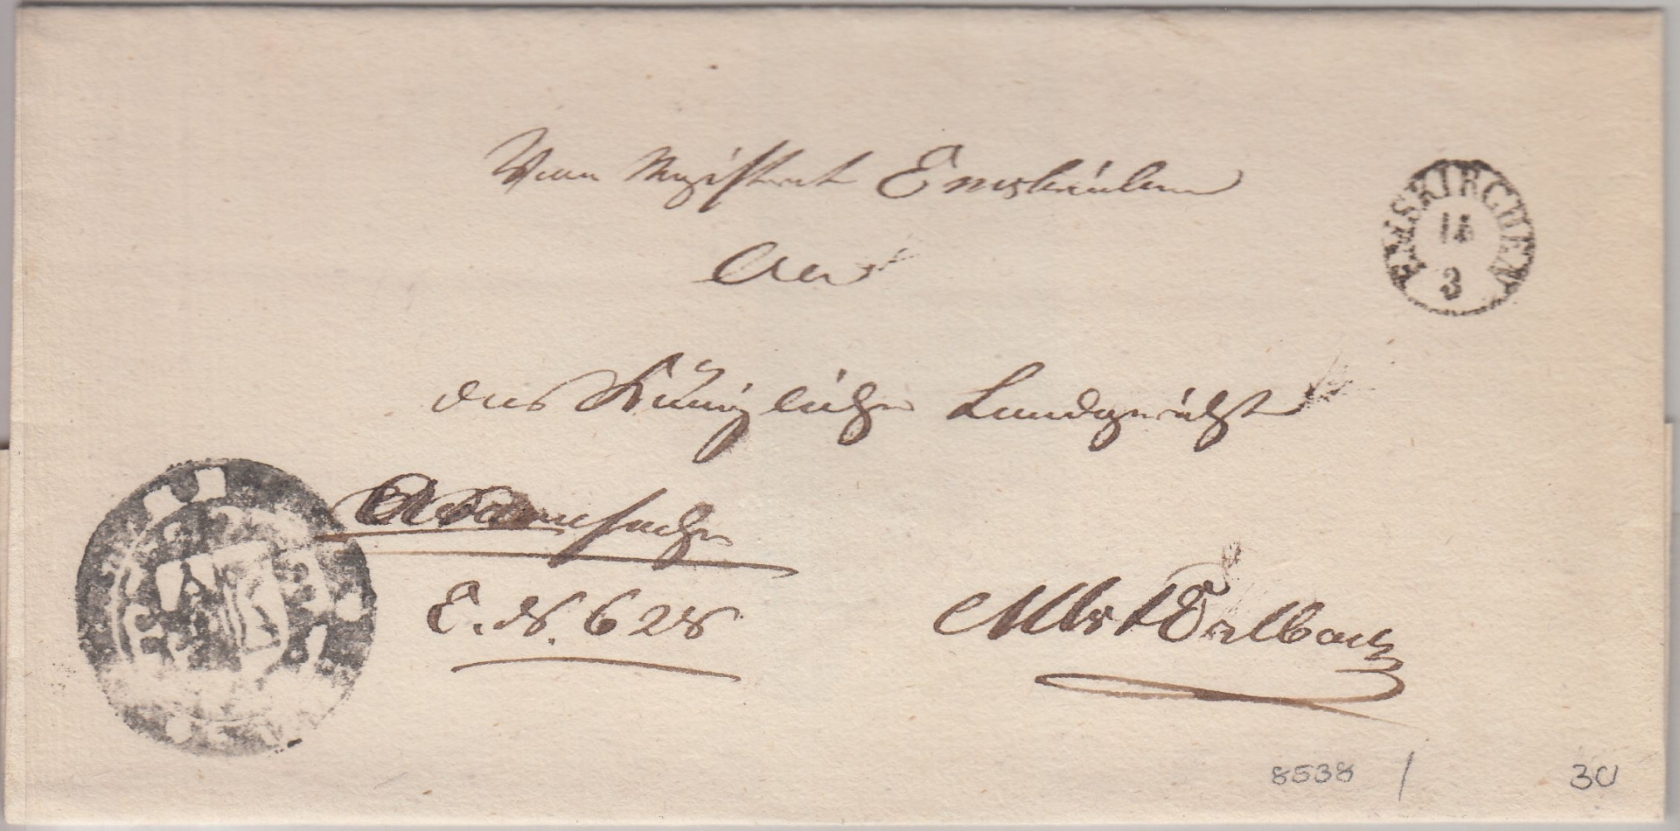 Vom Magistrat Emskirchen
EMSKIRCHEN
14
3
An
das Königliche Landgericht
Armensache
E. N. 628
Mkt Erlbach
8538 /
30